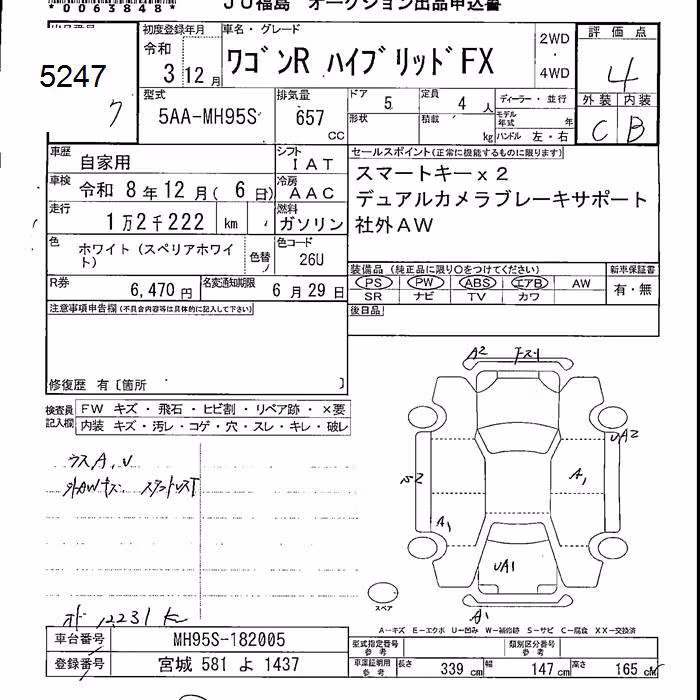 *0063848*
JU福島 オークション出品申込書
5247
ク
初度登録年月
令和
3 12月
車名・グレード
ワゴンR ハイブリッドFX
2WD
・
4WD
評価点
4
外装 内装
C B
型式
5AA-MH95S
排気量
657
CC
ドア
5
定員
4 人
ディーラー・並行
形状
積載
kg
モデル年式 年
ハンドル 左・右
車歴
自家用
シフト
IAT
車検
令和 8年12月( 6日)
冷房
AAC
走行
1万2千222 km
燃料
ガソリン
セールスポイント(正常に機能するものに限ります)
スマートキーx2
デュアルカメラブレーキサポート
社外AW
色
ホワイト(スペリアホワイト)
色替
色コード
26U
R券
6,470 円
名変通知期限
6月29日
装備品 (純正品に限り○をつけてください)
PS PW ABS エアB AW
SR ナビ TV カワ
新車保証書
有・無
注意事項申告欄(不具合内容等は具体的に記入して下さい)
後日品
修復歴 有〔箇所 〕
検査員記入欄
FW キズ・飛石・ヒビ割・リペア跡・×要
内装 キズ・汚レ・コゲ・穴・スレ・キレ・破レ
ウスA, U
外AWキズ
A2
UA2
A1
A1
UA1
A1
スペア
12231
A-キズ E-エクボ U-凹み W-補修跡 S-サビ C-腐食 XX-交換済
車台番号
MH95S-182005
登録番号
宮城 581 よ 1437
型式指定番号 参考
類別区分番号 参考
車庫証明用 参考
長さ 339 cm
幅 147 cm
高さ 165 cm